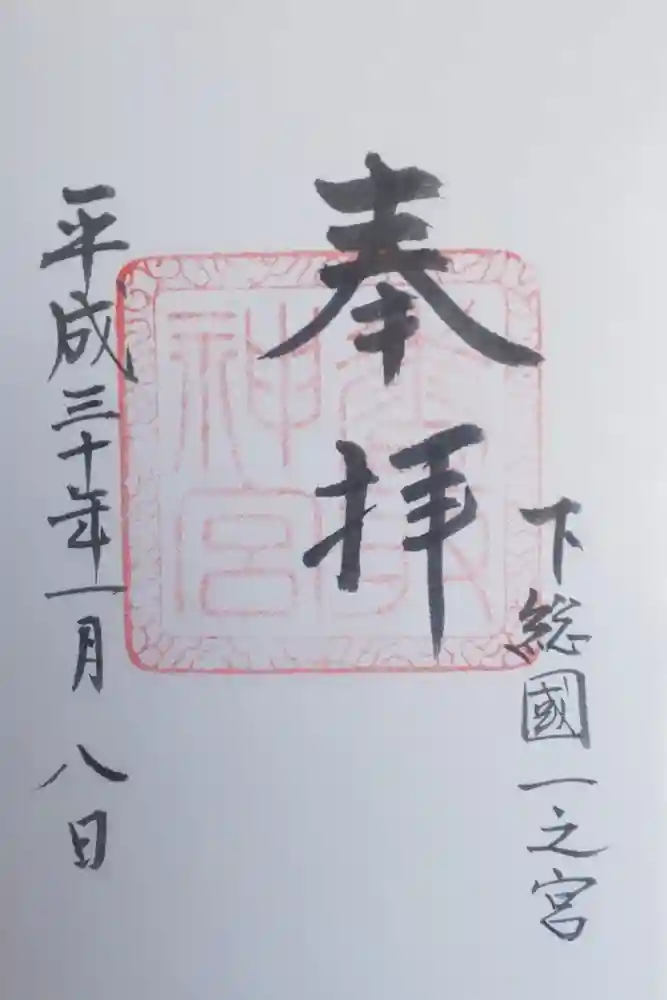 下総國一之宮
奉拝
香取
神宮
平成三十年一月八日